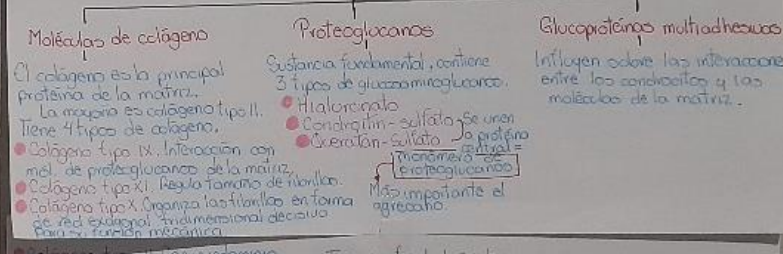 Moléculas de colágeno
El colágeno es la principal
proteína de la matriz.
La mayoria es colágeno tipo II.
Tiene 4 tipos de colageno.
Colágeno tipo IX. Interacción con
mol. de proteoglucanos de la matriz.
Colágeno tipo XI. Regula tamaño de fibrillas.
Colágeno tipo X. Organiza las fibrillas en forma
de red exagonal tridimensional decisivo
para su función mecánica
Proteoglucanos
Sustancia fundamental, contiene
3 tipos de glucosaminoglucanos.
Hialuronato
Condroitin-sulfato
Queratan-sulfato
Se unen
a proteína
central =
monómero de
proteoglucanos
Más importante el
agrecano.
Glucoproteínas multiadhesivas
Influyen sobre las interaccione
entre los condrocitos y las
moléculas de la matriz.